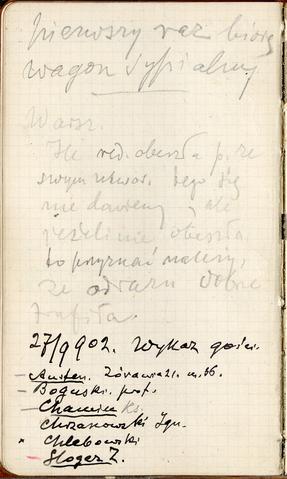 pierwszy raz biorę
wagon sypialny
Warsz.
Ile red. obeszła p. ze
swym utwor. tego się
nie dowiemy, ale
jeżeli nie obeszła,
to przyznać należy,
że odrazu dobrze
trafiła.
27/9 902. Wykaz gości.
– Anten. Żórawia 21. m. 36.
– Boguski. prof.
– Chamiec Ks.
Chrzanowski Ign.
× Chlebowski
– Gloger Z.